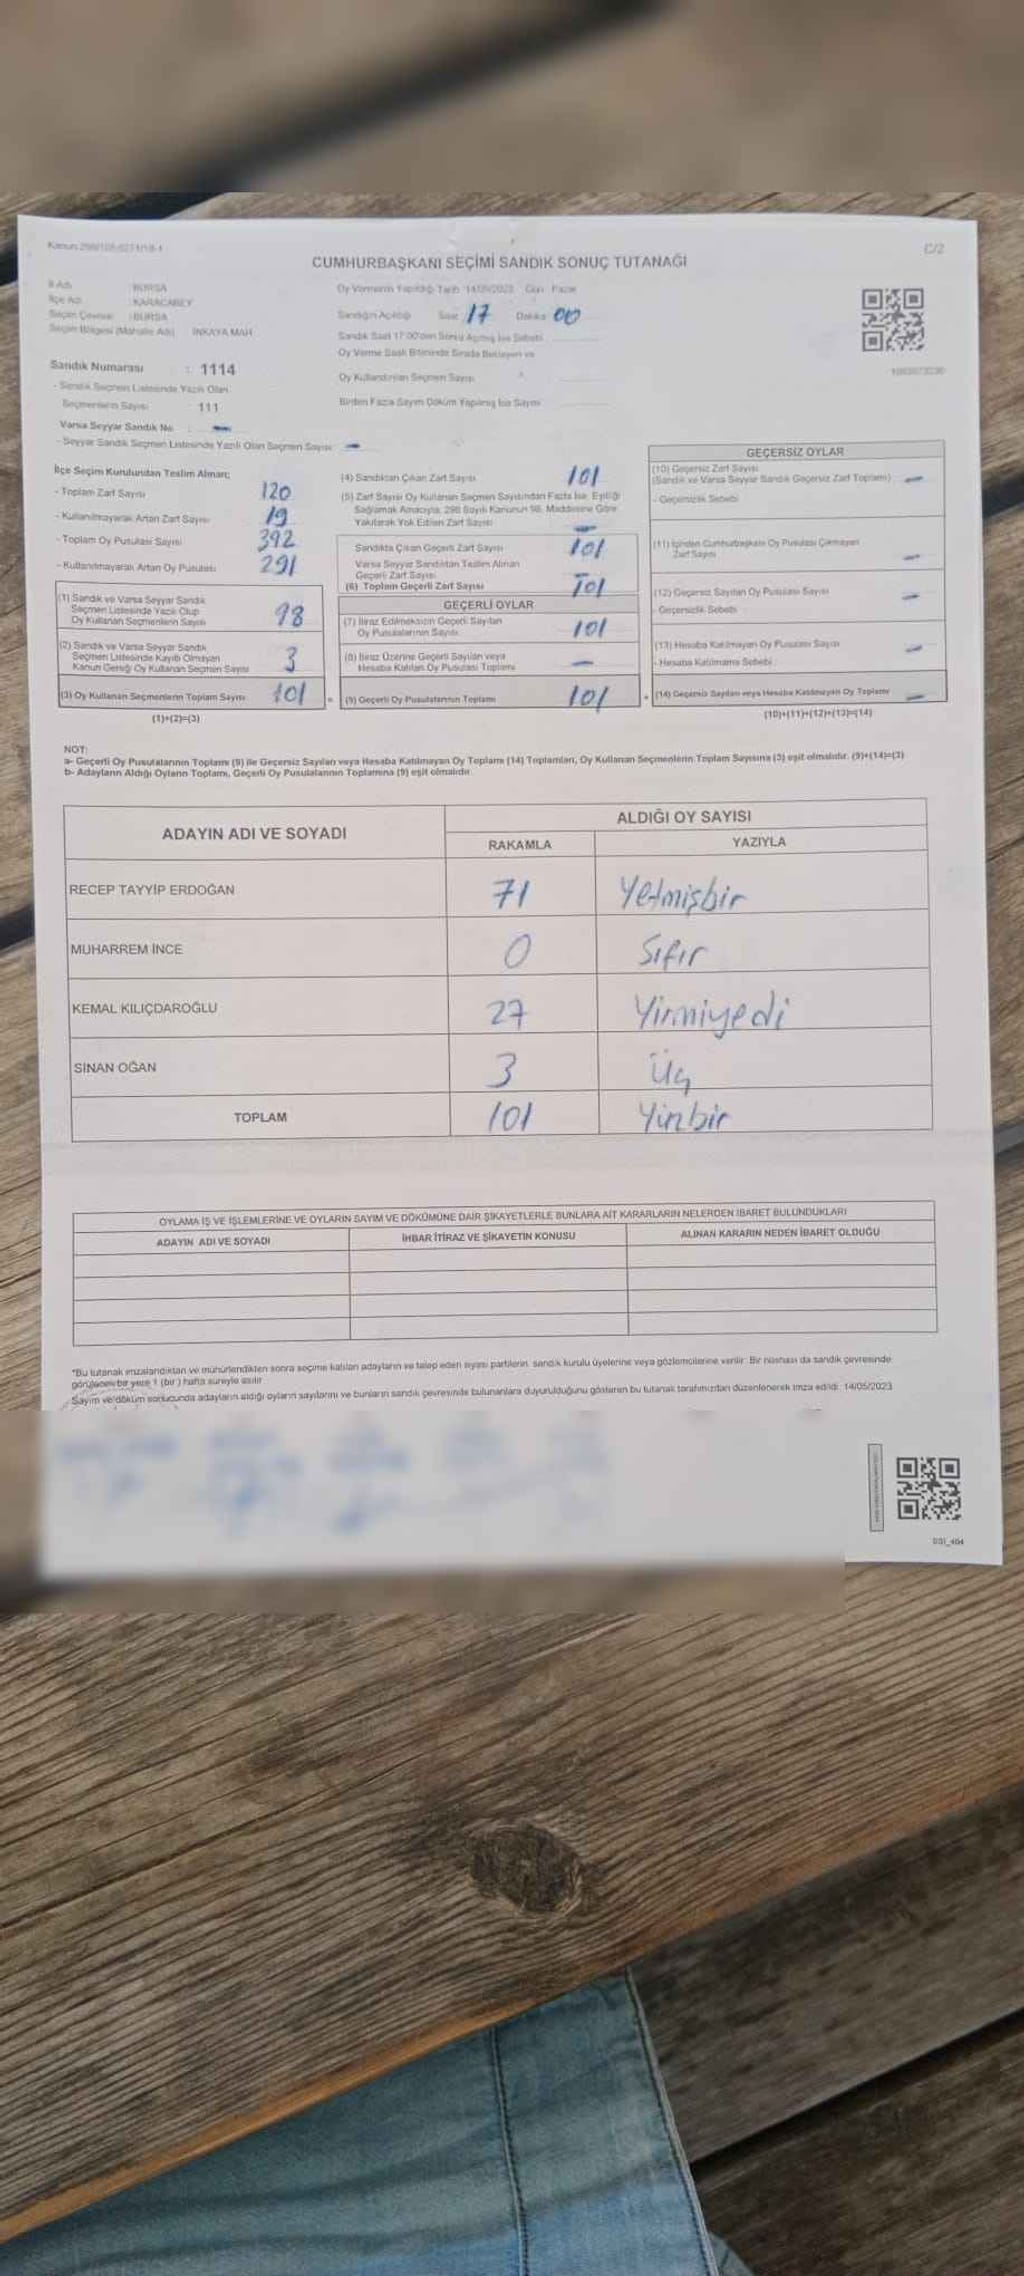 Kanun:298/105-6271/18-1
C/2
CUMHURBAŞKANI SEÇİMİ SANDIK SONUÇ TUTANAĞI
İl Adı : BURSA
İlçe Adı : KARACABEY
Seçim Çevresi : BURSA
Seçim Bölgesi (Mahalle Adı) İNKAYA MAH
Sandık Numarası : 1114
- Sandık Seçmen Listesinde Yazılı Olan
Seçmenlerin Sayısı 111
Varsa Seyyar Sandık No : -
- Seyyar Sandık Seçmen Listesinde Yazılı Olan Seçmen Sayısı: -
Oy Vermenin Yapıldığı Tarih 14/05/2023 Gün: Pazar
Sandığın Açıldığı Saat 17 Dakika 00
Sandık Saat 17:00'den Sonra Açılmış İse Sebebi
Oy Verme Saati Bitiminde Sırada Bekleyen ve
Oy Kullandırılan Seçmen Sayısı
Birden Fazla Sayım Döküm Yapılmış İse Sayısı
İlçe Seçim Kurulundan Teslim Alınan;
- Toplam Zarf Sayısı 120
- Kullanılmayarak Artan Zarf Sayısı 19
- Toplam Oy Pusulası Sayısı 392
- Kullanılmayarak Artan Oy Pusulası 291
(1) Sandık ve Varsa Seyyar Sandık
Seçmen Listesinde Yazılı Olup
Oy Kullanan Seçmenlerin Sayısı 98
(2) Sandık ve Varsa Seyyar Sandık
Seçmen Listesinde Kayıtlı Olmayan
Kanun Gereği Oy Kullanan Seçmen Sayısı 3
(3) Oy Kullanan Seçmenlerin Toplam Sayısı 101
(1)+(2)=(3)
(4) Sandıktan Çıkan Zarf Sayısı 101
(5) Zarf Sayısı Oy Kullanan Seçmen Sayısından Fazla İse, Eşitliği
Sağlamak Amacıyla, 298 Sayılı Kanunun 98. Maddesine Göre
Yakılarak Yok Edilen Zarf Sayısı -
Sandıkta Çıkan Geçerli Zarf Sayısı 101
Varsa Seyyar Sandıktan Teslim Alınan
Geçerli Zarf Sayısı -
(6) Toplam Geçerli Zarf Sayısı 101
GEÇERLİ OYLAR
(7) İtiraz Edilmeksizin Geçerli Sayılan
Oy Pusulalarının Sayısı 101
(8) İtiraz Üzerine Geçerli Sayılan veya
Hesaba Katılan Oy Pusulası Toplamı -
(9) Geçerli Oy Pusulalarının Toplamı 101
GEÇERSİZ OYLAR
(10) Geçersiz Zarf Sayısı
(Sandık ve Varsa Seyyar Sandık Geçersiz Zarf Toplamı) -
- Geçersizlik Sebebi
(11) İçinden Cumhurbaşkanı Oy Pusulası Çıkmayan
Zarf Sayısı -
(12) Geçersiz Sayılan Oy Pusulası Sayısı -
- Geçersizlik Sebebi
(13) Hesaba Katılmayan Oy Pusulası Sayısı -
- Hesaba Katılmama Sebebi
(14) Geçersiz Sayılan veya Hesaba Katılmayan Oy Toplamı -
(10)+(11)+(12)+(13)=(14)
NOT:
a- Geçerli Oy Pusulalarının Toplamı (9) ile Geçersiz Sayılan veya Hesaba Katılmayan Oy Toplamı (14) Toplamları, Oy Kullanan Seçmenlerin Toplam Sayısına (3) eşit olmalıdır. (9)+(14)=(3)
b- Adayların Aldığı Oyların Toplamı, Geçerli Oy Pusulalarının Toplamına (9) eşit olmalıdır.
ADAYIN ADI VE SOYADI
ALDIĞI OY SAYISI
RAKAMLA YAZIYLA
RECEP TAYYİP ERDOĞAN 71 Yetmişbir
MUHARREM İNCE 0 Sıfır
KEMAL KILIÇDAROĞLU 27 Yirmiyedi
SİNAN OĞAN 3 Üç
TOPLAM 101 Yüzbir
OYLAMA İŞ VE İŞLEMLERİNE VE OYLARIN SAYIM VE DÖKÜMÜNE DAİR ŞİKAYETLERLE BUNLARA AİT KARARLARIN NELERDEN İBARET BULUNDUKLARI
ADAYIN ADI VE SOYADI İHBAR İTİRAZ VE ŞİKAYETİN KONUSU ALINAN KARARIN NEDEN İBARET OLDUĞU
*Bu tutanak imzalandıktan ve mühürlendikten sonra seçime katılan adayların ve talep eden siyasi partilerin, sandık kurulu üyelerine veya gözlemcilerine verilir. Bir nüshası da sandık çevresinde
görülecek bir yere 1 (bir) hafta süreyle asılır.
Sayım ve döküm sonucunda adayların aldığı oyların sayılarını ve bunların sandık çevresinde bulunanlara duyurulduğunu gösteren bu tutanak tarafımızdan düzenlenerek imza edildi. 14/05/2023